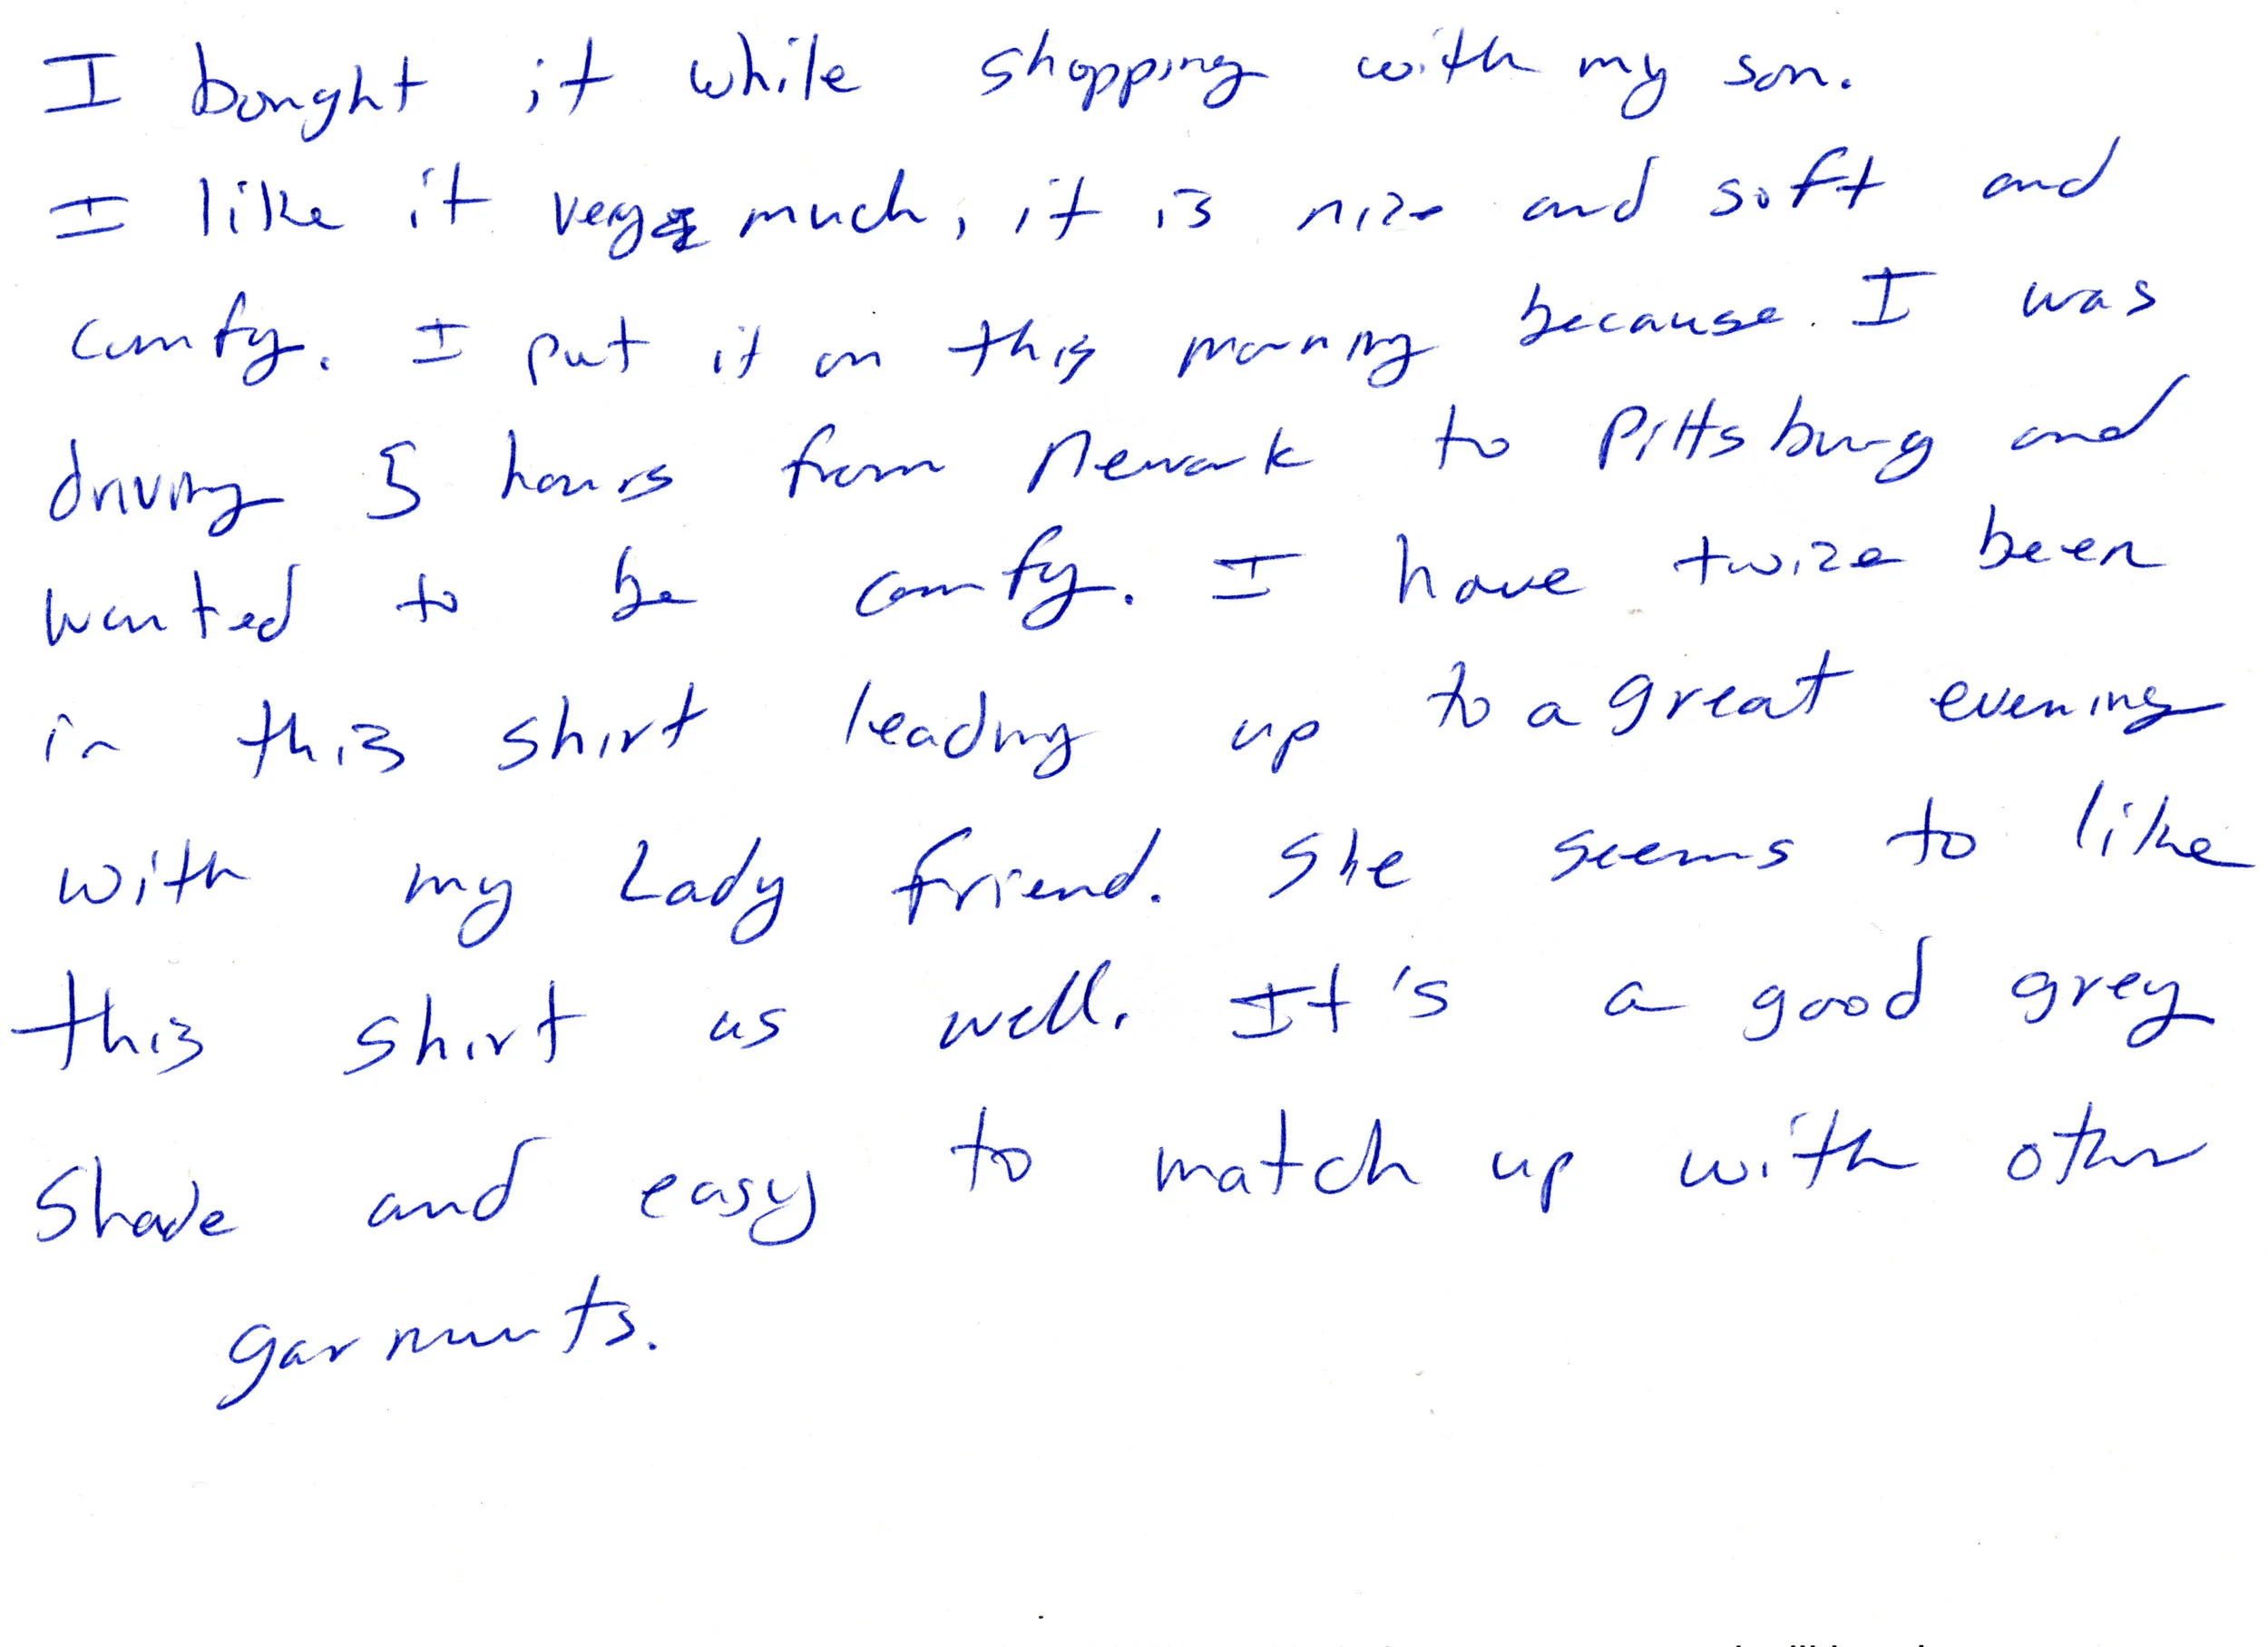 I bought it while shopping with my son.
I like it very much, it is nice and soft and
comfy. I put it on this morning because I was
driving 5 hours from Newark to Pittsburg and
wanted to be comfy. I have twice been
in this shirt leading up to a great evening
with my Lady friend. She seems to like
this shirt as well. It's a good grey
shade and easy to match up with other
garments.